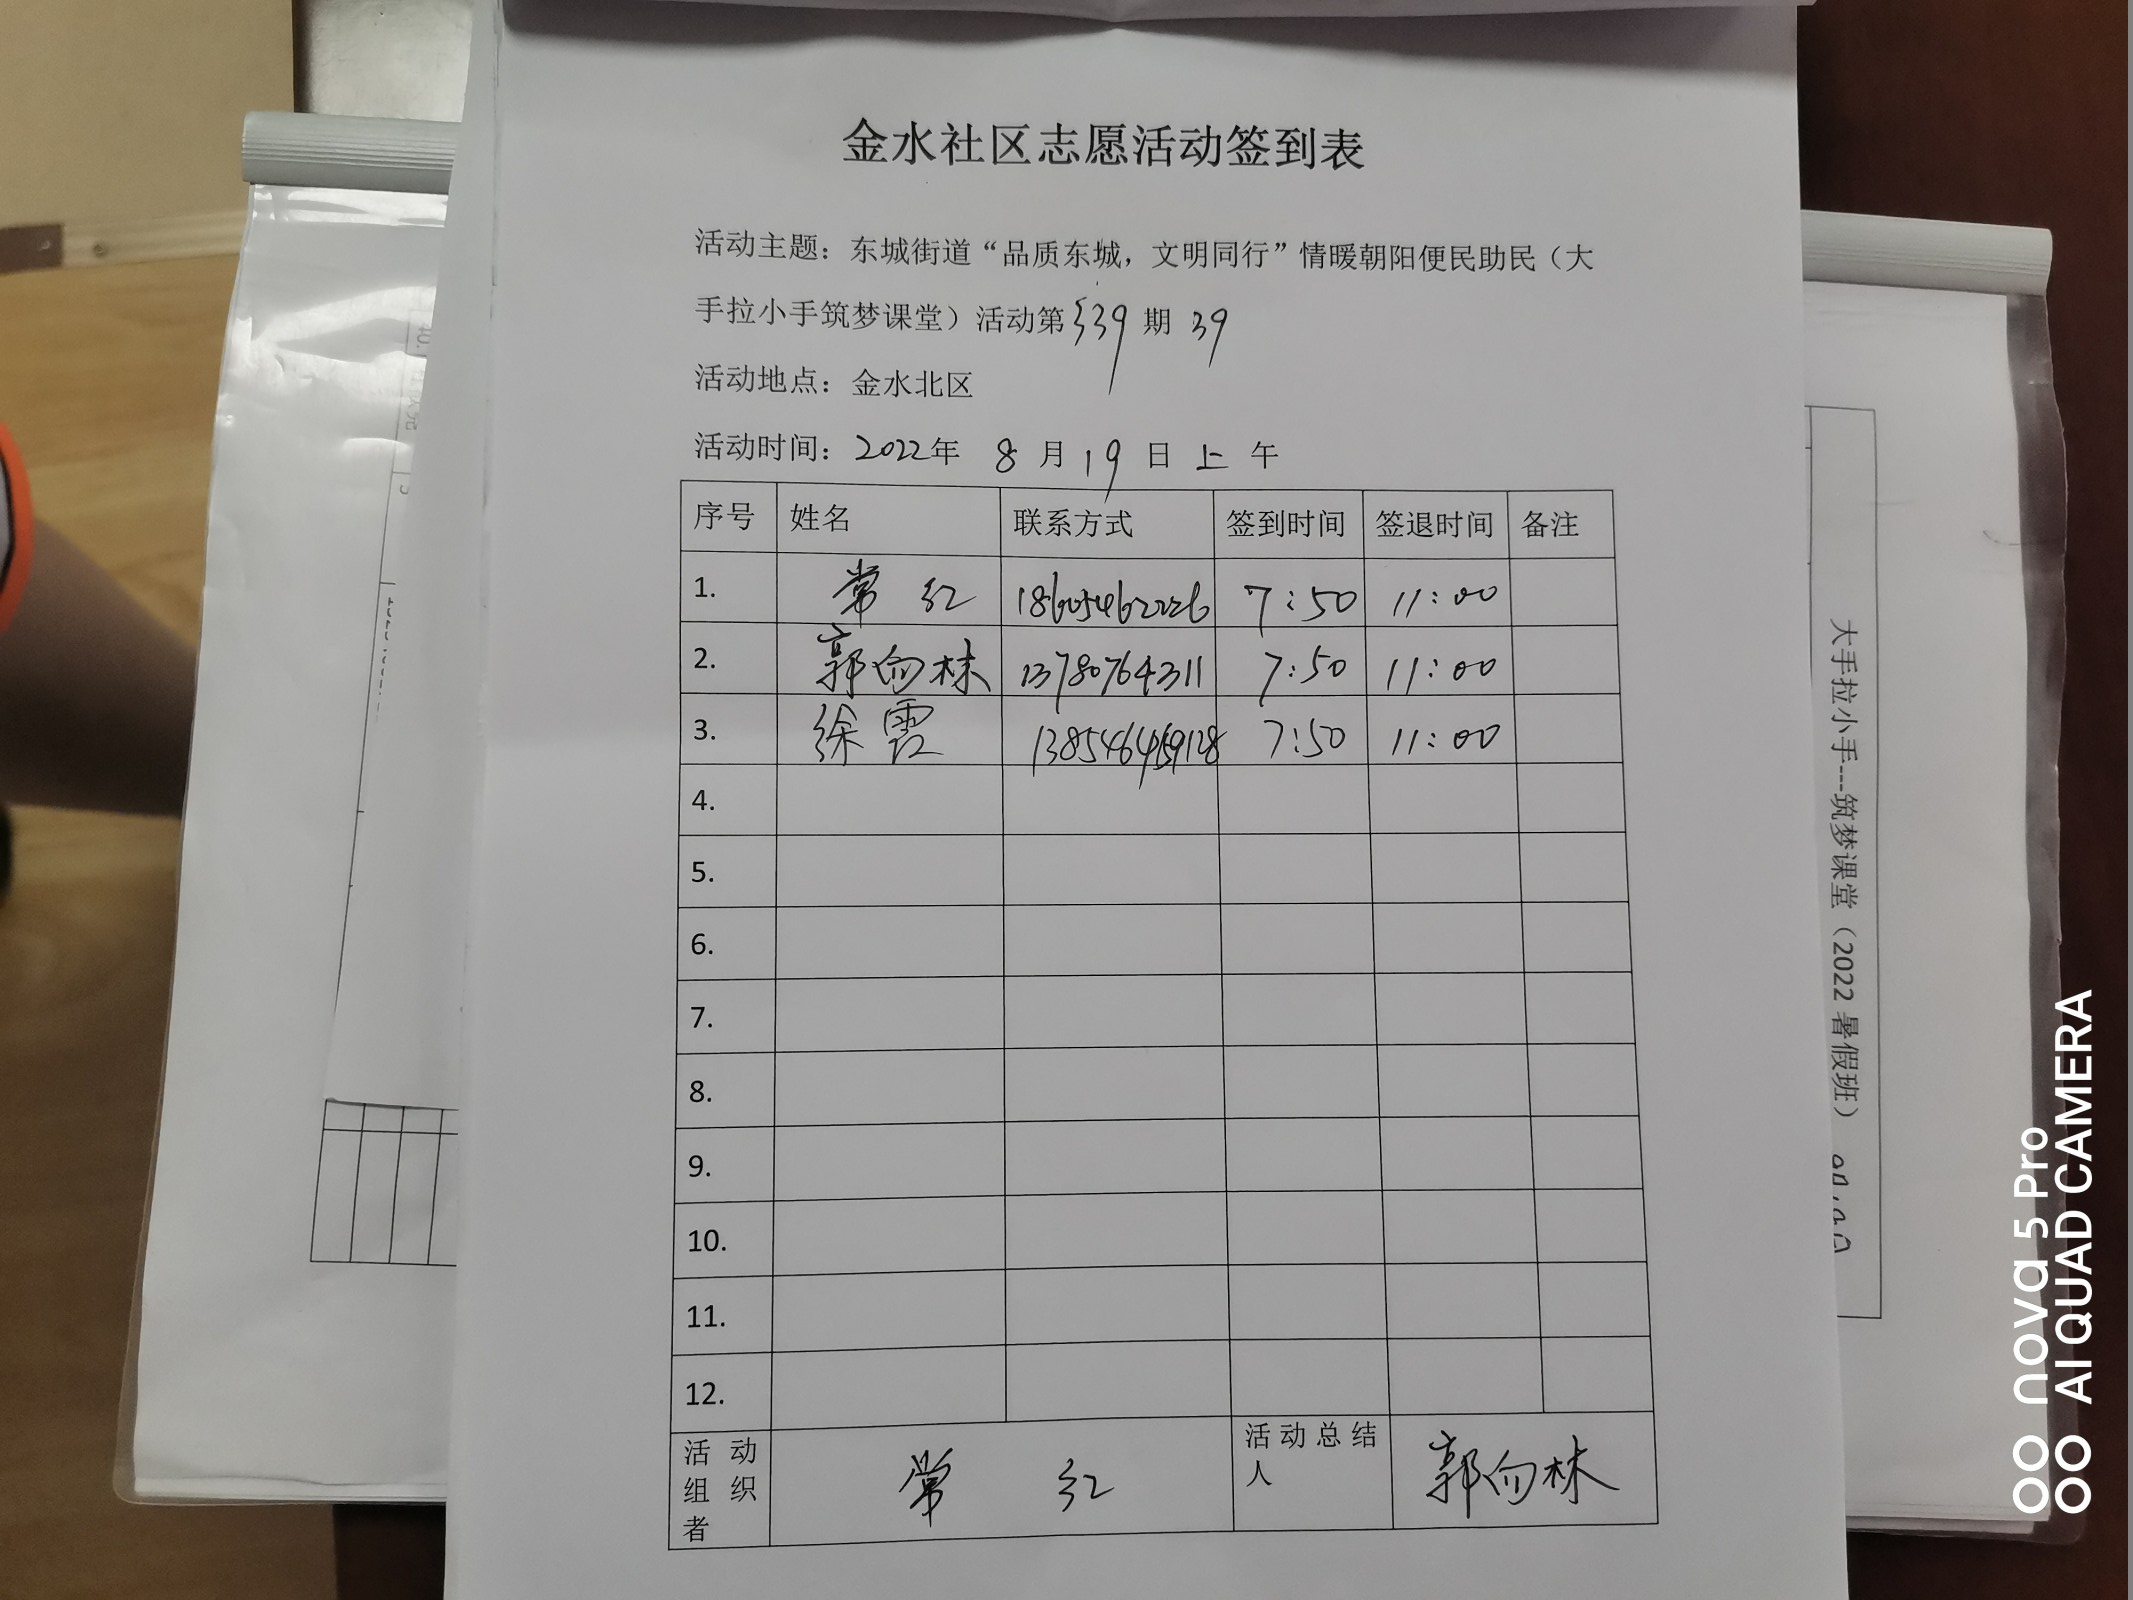 金水社区志愿活动签到表
活动主题：东城街道“品质东城，文明同行”情暖朝阳便民助民（大
手拉小手筑梦课堂）活动第539期 39
活动地点：金水北区
活动时间：2022年 8 月 19 日 上 午
序号 姓名 联系方式 签到时间 签退时间 备注
1. 常红 18605462226 7:50 11:00
2. 郭向林 13780764311 7:50 11:00
3. 徐霞 7:50 11:00
4.
5.
6.
7.
8.
9.
10.
11.
12.
活动组织者 常红 活动总结人 郭向林
大手拉小手---筑梦课堂（2022 暑假班）
nova 5 Pro
AI QUAD CAMERA